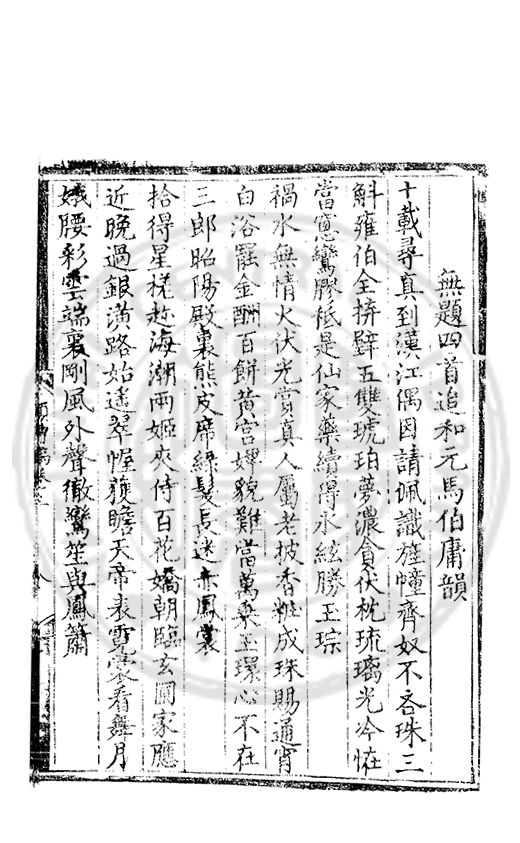 無題四首追和元馬伯庸韻
十載尋真到漢江偶因請佩識旌幢齊奴不吝珠三
斛雍伯全拚璧五雙琥珀夢濃貪伏枕琉璃光冷恠
當窓鸞膠秪是仙家藥續得水絃勝玉琮
禍水無情火伏光賞真人屬老披香粧成珠賜通宵
白浴罷金酬百餅黃宮婢貌難當萬乗玉環心不在
三郎昭陽殿裏熊皮席綠髮長迷赤鳳裳
拾得星槎趂海潮兩姬夾侍百花嬌朝臨玄圃家應
近晩過銀潢路始遙翠幄獲瞻天帝表霓裳看舞月
娥腰彩雲端裏剛風外聲徹鸞笙與鳳簫